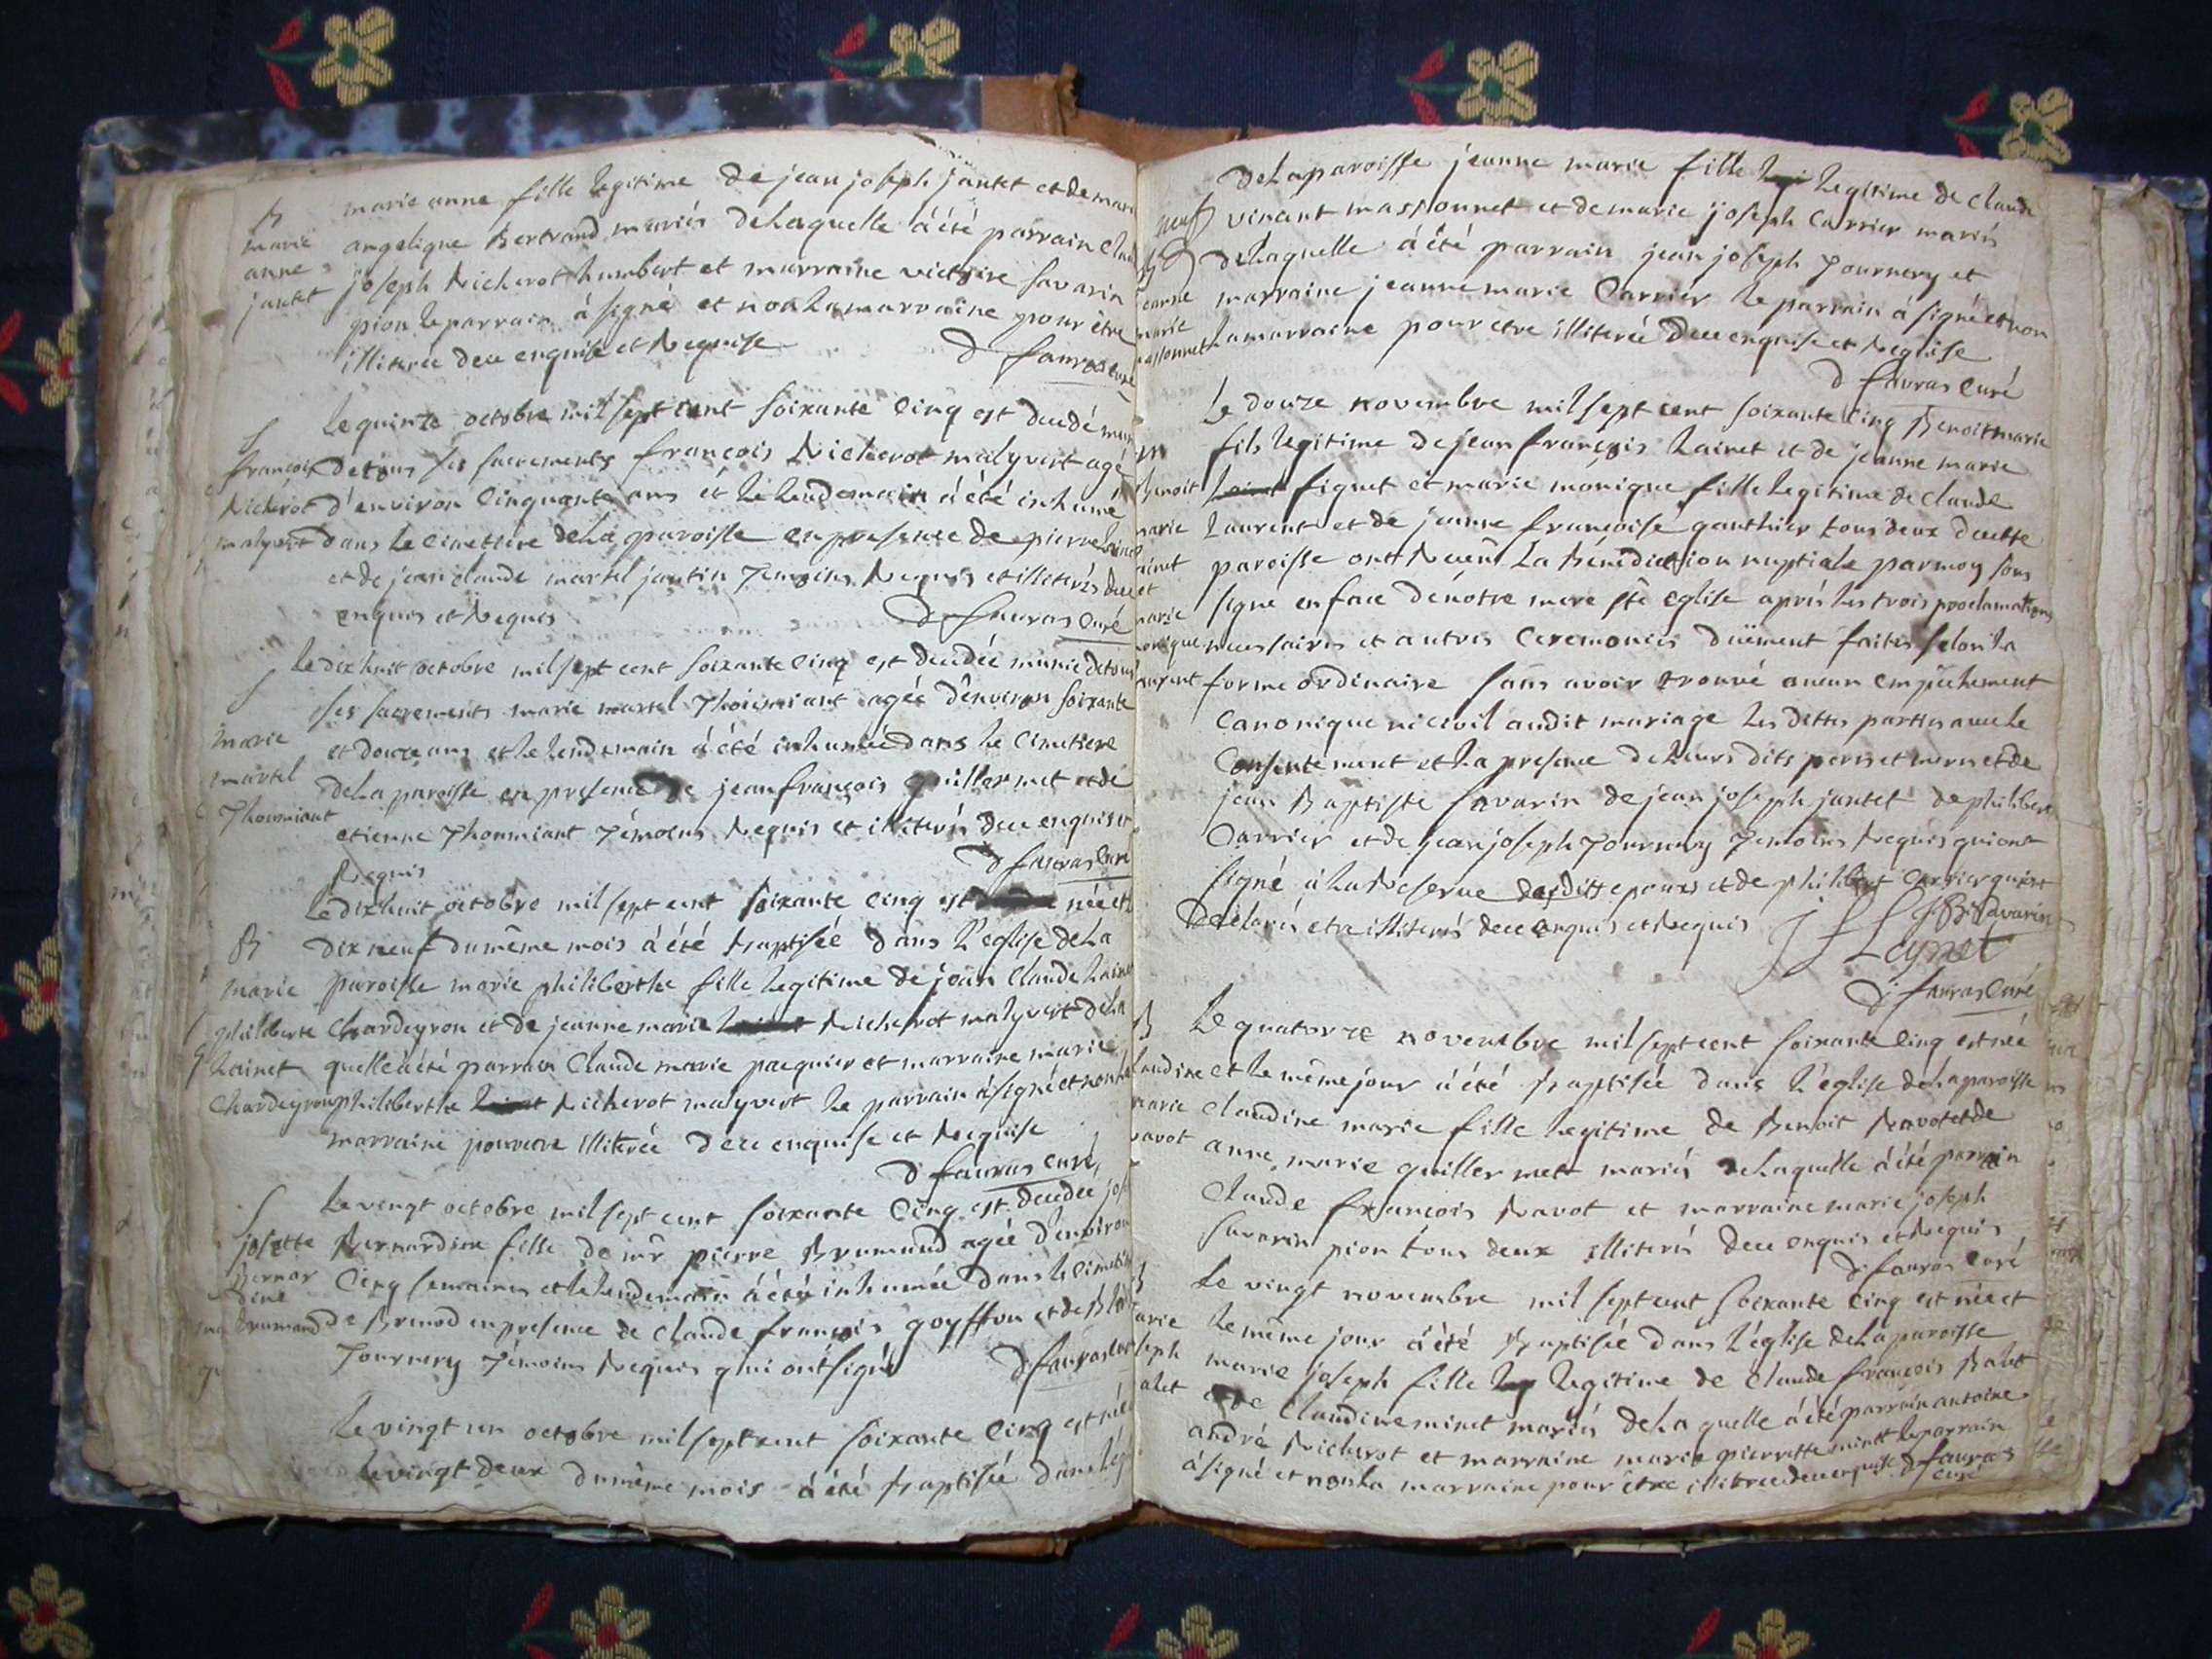 B marie anne fille legitime de jean joseph jantet et de mari
marie angelique Bertrand mariés de laquelle á été parrain Clau
anne joseph Nicherot humbert et marraine victoire Savarin
jantet pion le parrain á signé et non la marraine pour être
illiterée de ce enquise et Requise
D fauras Curé
S Le quinze octobre mil sept cent soixante cinq est decedé muni
françois de tous ses sacrements françois Nicherot malyvert agé
Nicherot d'environ Cinquante ans et le lendemain á été inhumé
malyvert dans le cimetiere de la paroisse en presence de pierre
et de jean claude martel jantin Temoins Requis et illiterés de ce
enquis et Requis
D fauras Curé
S Le dix huit octobre mil sept cent soixante cinq est decedée munie de tous
ses sacrements marie martel Thoumiant agée d'environ soixante
marie et douze ans et le lendemain á été inhumée dans le Cimetiere
martel de la paroisse en presence de jean françois guillermet et de
Thoumiant etienne Thoumiant Témoins Requis et illiterés de ce enquis et
Requis
D fauras Curé
Le dix huit octobre mil sept cent soixante cinq est née et
B dix neuf du même mois á été Baptisée dans l'eglise de la
marie paroisse marie philiberthe fille legitime de jean Claude Lainet
philiberte Chardeyron et de jeanne marie Nicherot malyvert de la
Lainet quelle á été parrain Claude marie pacquier et marraine marie
Chardeyron philiberthe Nicherot malyvert le parrain á signé et non la
marraine pour être illiterée de ce enquise et Requise
D fauras curé
S Le vingt octobre mil sept cent soixante Cinq est decedée jos
josette Bernardine fille de mr pierre Brumand agée d'environ
Bernar Cinq semaines et le lendemain á été inhumée dans le cimetiere
dine
Brumand de Brenod en presence de Claude françois goyffon et de
Tournery Témoins Requis qui ont signé
D fauras Curé
Le vingt un octobre mil sept cent soixante Cinq est née
le vingt deux du même mois á été Baptisée dans l'eg
de la paroisse jeanne marie fille legitime de Claude
neuf vincent massonnet et de marie joseph Carrier mariés
B de laquelle á été parrain jean joseph Tournery et
jeanne marraine jeanne marie Carrier le parrain á signé et non
marie
massonnet la marraine pour être illiterée de ce enquise et Requise
D fauras Curé
Le douze novembre mil sept cent soixante Cinq Benoit marie
m fils legitime de jean françois Lainet et de jeanne marie
Benoit figuet et marie monique fille legitime de Claude
marie Laurent et de jeanne françoise gauthier tous deux de cette
ainet paroisse ont Receu La Bénédiction nuptiale par moy sous
et signé en face de nôtre mere ste eglise aprés les trois proclamations
marie
onique necessaires et autres Ceremonies düement faites selon la
aurent forme ordinaire sans avoir trouvé aucun empéchement
Canonique ni civil audit mariage les dittes parties avec le
Consentement et la presence de leurs dits peres et meres et de
jean Baptiste Savarin de jean joseph jantet de philibert
Carrier et de jean joseph Tournery Temoins Requis qui ont
signé á la Reserve des dits epoux et de philibert Carrier qui ont
declarés etre illiterés de ce enquis et Requis
J B Savarin
J f Leynet
D fauras Curé
B Le quatorze novembre mil sept cent soixante Cinq est née
laudine et le même jour á été Baptisée dans l'église de la paroisse
marie Claudine marie fille legitime de Benoit Ravot et de
ravot anne marie guillermet mariés de laquelle á été parrain
Claude françois Ravot et marraine marie joseph
Savarin pion tous deux illiterés de ce enquis et Requis
D fauras Curé
B Le vingt novembre mil sept cent soixante Cinq est née et
arie le même jour á été Baptisée dans l'église de la paroisse
seph marie joseph fille legitime de Claude françois Balet
alet et de Claudine minet mariés de la quelle á été parrain antoine
andré Nicherot et marraine marie pierrette minet le parrain
á signé et non la marraine pour être illiterée de ce enquise D fauras
curé